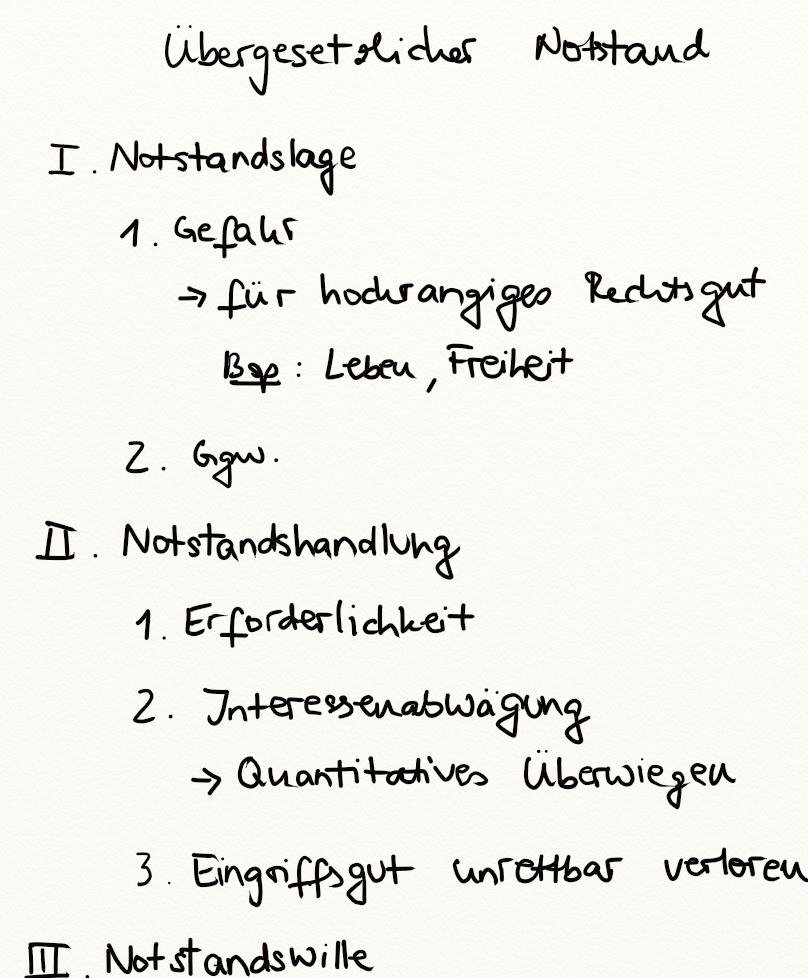 Übergesetzlicher Notstand
I. Notstandslage
1. Gefahr
→ für hochrangiges Rechtsgut
Bsp: Leben, Freiheit
2. Ggw.
II. Notstandshandlung
1. Erforderlichkeit
2. Interessenabwägung
→ Quantitatives Überwiegen
3. Eingriffsgut unrettbar verloren
III. Notstandswille